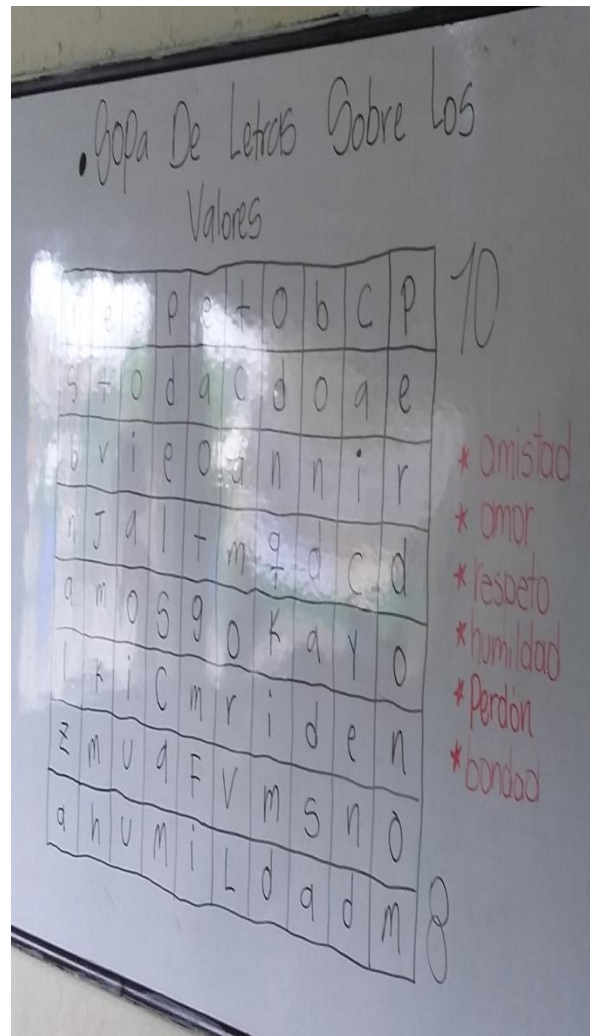 . Sopa De Letras Sobre Los
Valores
r e s p e t o b c p
10
s t o d a c d o a e
b v i e o a n n i r
n J a l t m q a c d
a m o s g o k a y o
l k i c m r i d e n
z m u a F V m s n o
a h u m i L d a d m
8
* amistad
* amor
* respeto
* humildad
* Perdón
* bondad